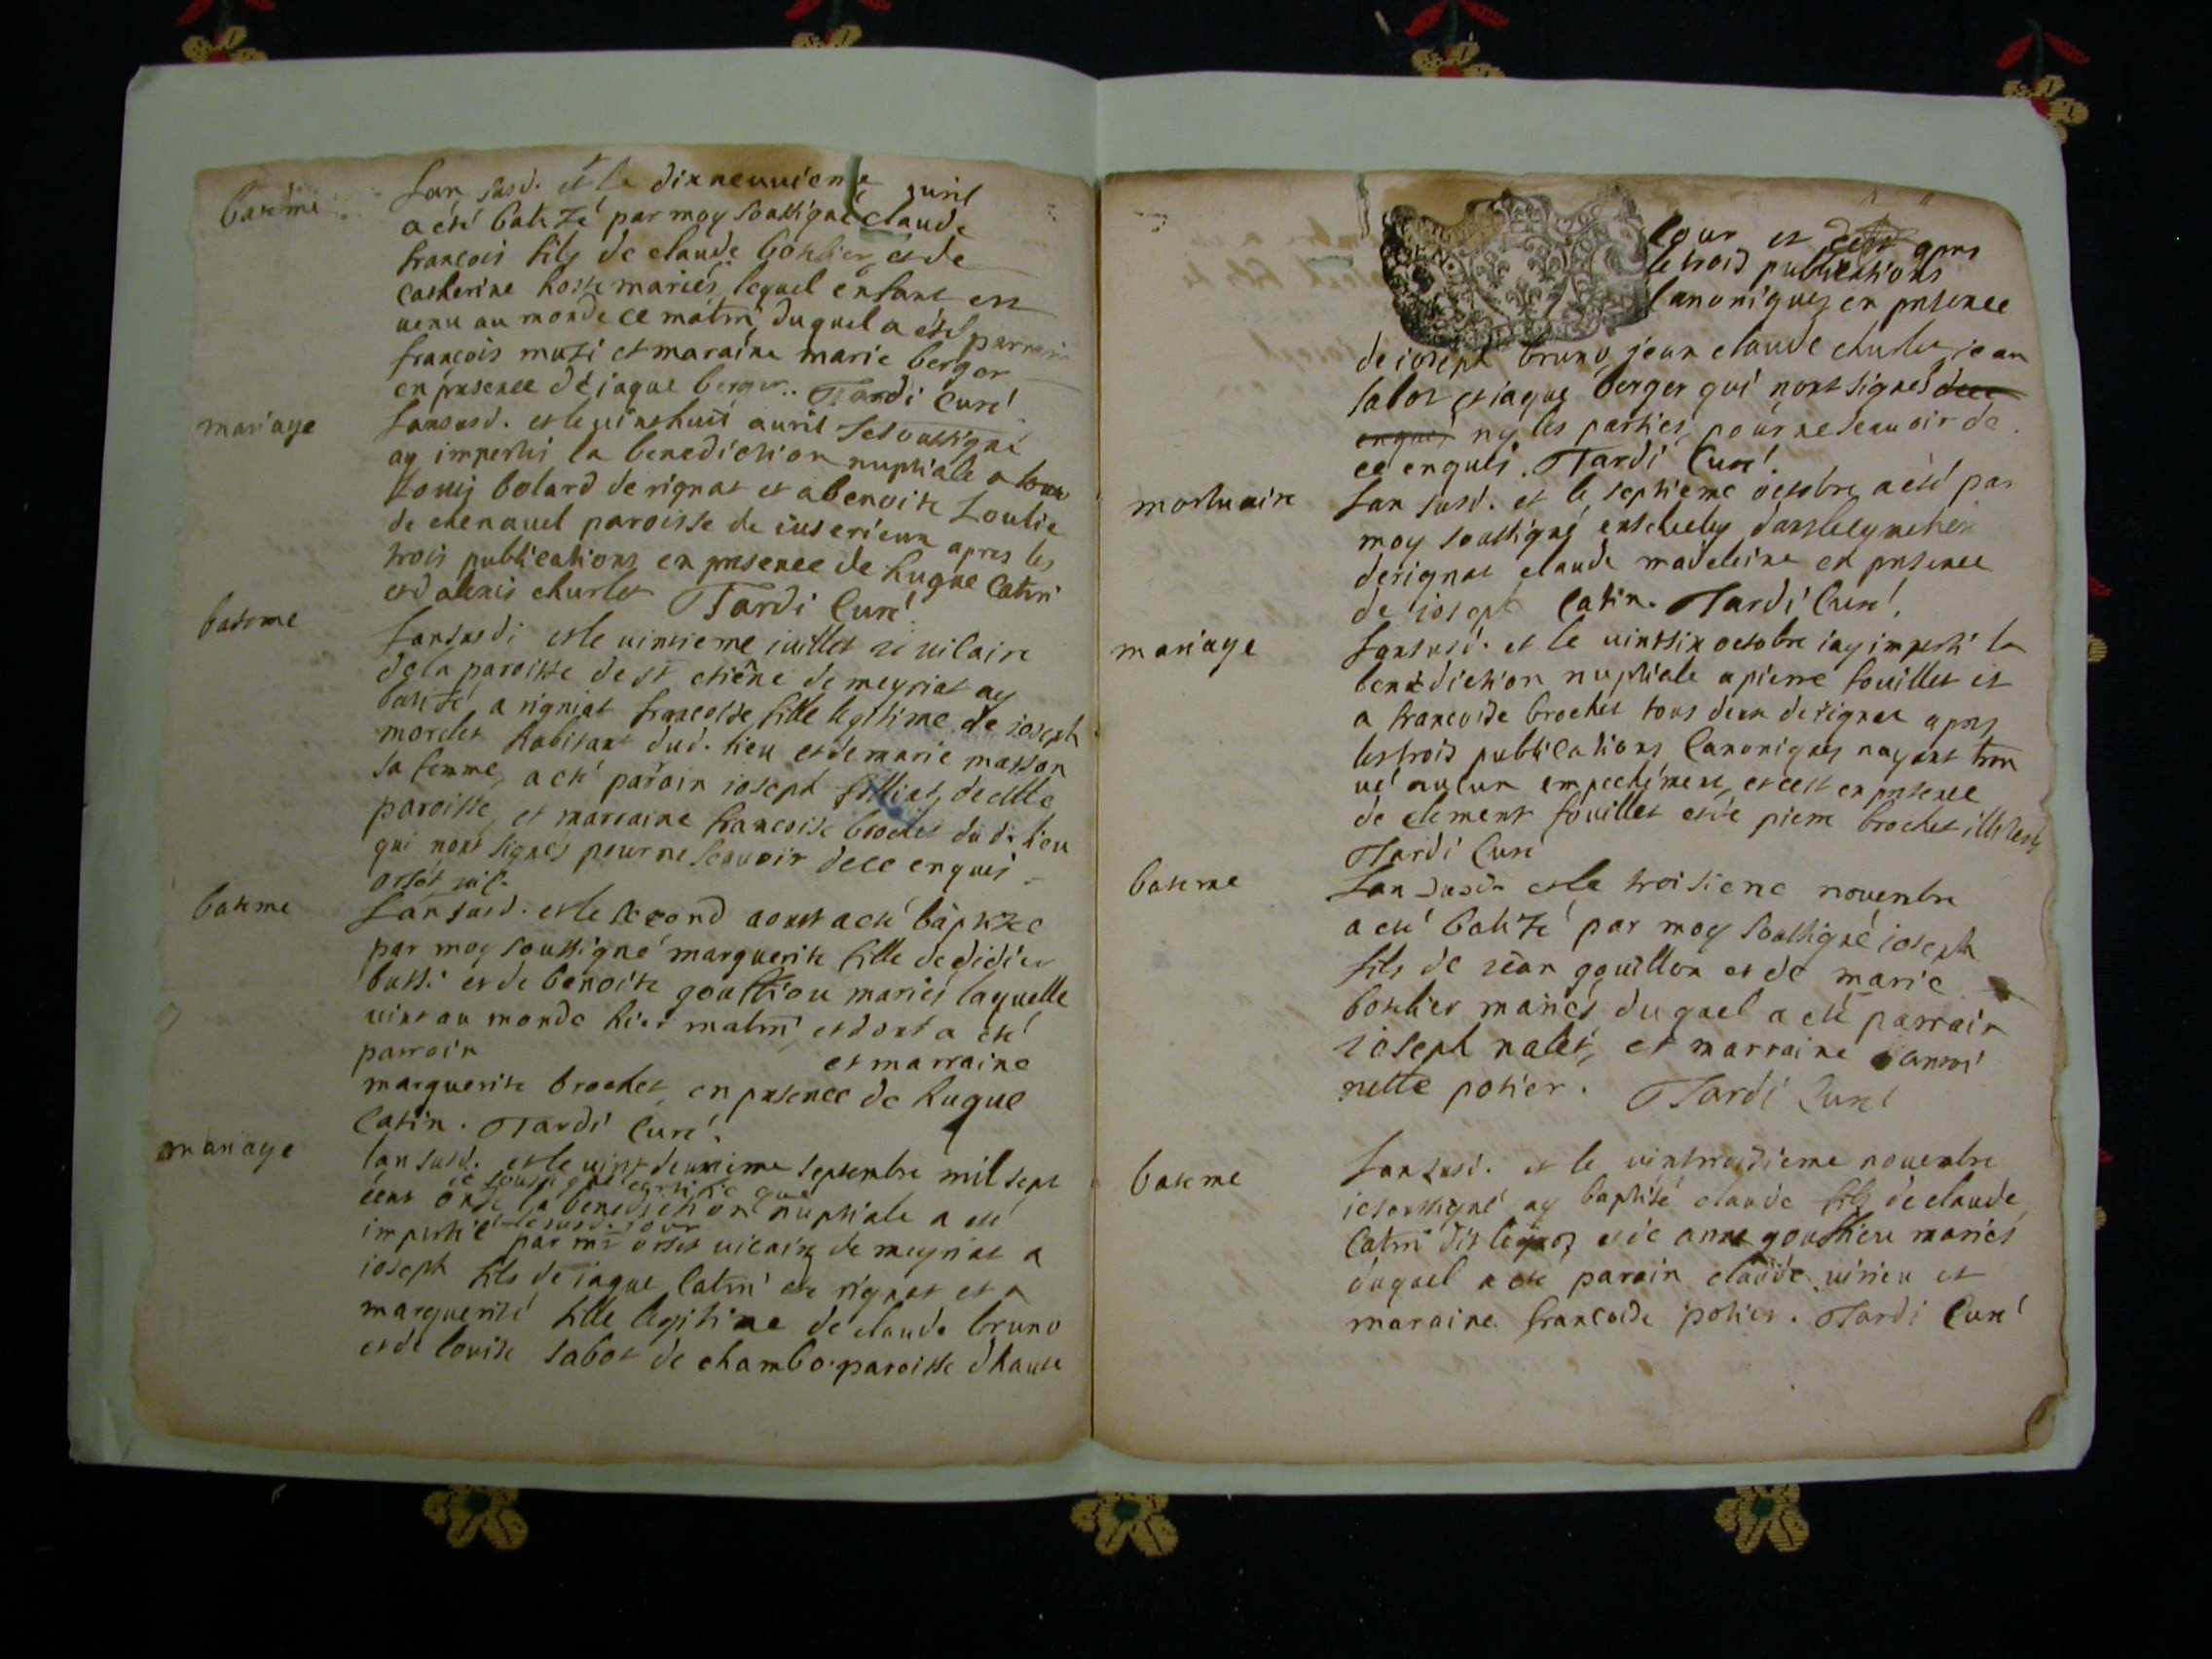 batéme
Lan susd. et le dixneuvieme avril
a esté batizé par moy soussigné claude
francois fils de claude bottier et de
catherine hoste mariés, lequel enfant est
venu au monde ce matin, duquel a été parrain
francois muti et maraine marie berger
en presence de jaque berger.. Tardi Curé
mariage
Lansusd. et le vinthuit auril Je soussigné
ay imperti la benediction nuptiale a
Louis bolard de rignat et a benoite
de chenavel paroisse de iuserieux apres les
trois publications en presence de hugue Catin
et d alexis churlet Tardi Curé
bateme
Lansusdi et le vintieme iuillet ie vicaire
de la paroisse de st etiene de meyriat ay
batizé a rigniat francoise fille legitime de ioseph
morelet habitant dud. lieu et de marie masson
sa femme, a eté paroin ioseph de cette
paroisse, et marraine francoise brochet du d. lieu
qui nont signés pour ne scavoir de ce enquis
orset vic.
bateme
Lan susd. et le second aoust a eté baptizee
par moy soussigné marguerite fille de didier
bussi et de benoite gouttiou mariés laquelle
vint au monde hier matin et dont a eté
parroin et marraine
marguerite brochet, en presence de hugue
Catin. Tardi Curé.
mariage
lan susd. et le vint deuxieme septembre mil sept
ie soussigné certifie que
cent onze la benediction nuptiale a eté
le susd. iour
impertie par mr orset vicaire de meyriat a
ioseph fils de iaque Catin de rignat et a
marguerite fille legitime de claude bruno
et de louise sabot de chambo paroisse dhaute
Cour et apres
le trois publications
Canoniques en presence
de ioseph bruno, jean claude churlet jean
sabot et iaque berger qui nont signés
enquis ny les parties pour ne scauoir de
ce enquis. Tardi Curé.
mortuaire
Lan susd. et le septieme octobre a eté par
moy soussigné ensevely dans le cymetiere
de rignat claude madeleine en presence
de ioseph Catin. Tardi Curé.
mariage
Lansusd. et le vintsix octobre iay imperti la
benediction nuptiale a pierre fouillet et
a francoise brochet tous deux de rignat apres
les trois publications Canoniques nayant trou
ué aucun empechement, et cest en presence
de clement fouillet et de pierre brochet
Tardi Curé
bateme
Lan susd. et le troisieme novembre
a eté batizé par moy soussigné ioseph
fils de iean gouillon et de marie
bottier mariés duquel a eté parrain
ioseph nalet, et marraine antoi
nette potier. Tardi Curé
bateme
Lan susd. et le vintroisieme novembre
ie soussigné ay baptisé claude fils de claude
Catin dit et de anne gouttiere mariés
duquel a eté parain claude virieu et
maraine francoise potier. Tardi Curé